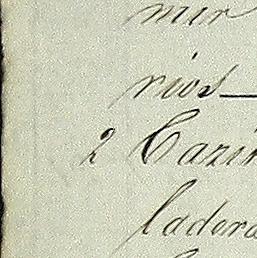 mer
rios
2 Cazin
ladera